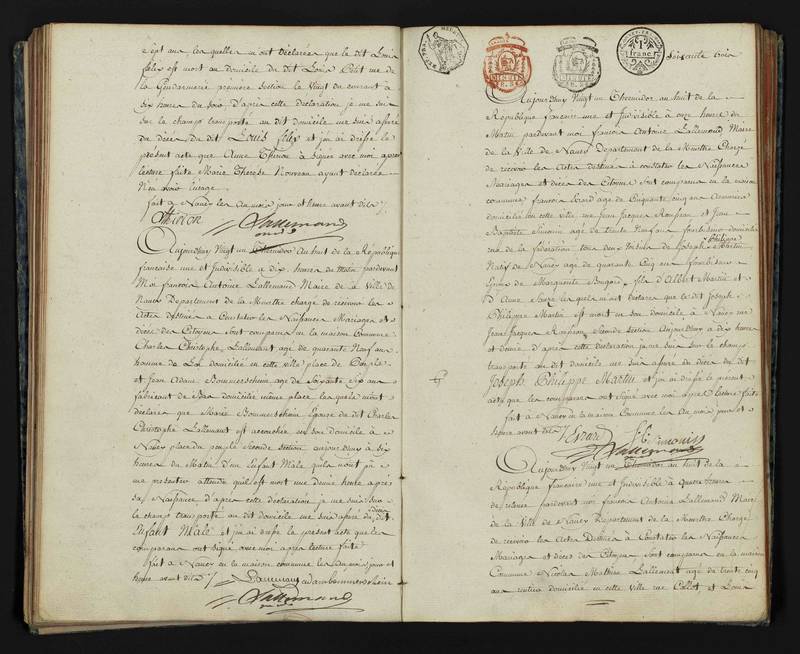 Sept ans, les quelles m'ont déclarées que le dit Louis
félix est mort au domicile du dit Louis Petit rue de
la Gendarmerie première Section le Vingt du courant à
Six heures du soir D'après cette déclaration je me suis
sur le champs transporté au dit domicile me suis assuré
du décès du dit Louis félix et j'ai dressé le
présent acte que Anne Thirion à Signée avec moi après
lecture faite Marie Therese Nouveau ayant déclarée
N'en avoir l'usage
fait à Nancy les Au mois jour et heure avant dits
Athirion Lallemand
Aujourdhuy Vingt un Thermidor Au huit de la République
française une et Indivisible à dix heures du Matin pardevant
Moi françois Antoine Lallemand Maire de la Ville de
Nancy Département de la Meurthe chargé de recevoir les
Actes destinés à Constater les Naissances Mariages et
décès des Citoyens Sont comparus en la maison Commune
Charles Christophe Lallemant age de quarante Neuf ans
homme de Loi domicilié en cette ville place du Peuple
et Jean Adam Bommerschein age de Soixante Six ans
fabricant de domicilié même place les quels m'ont
déclarés que Marie Bommerschein Epouse du dit Charles
Christophe Lallemant est accouchée en son domicile à
Nancy place du peuple Seconde Section aujourdhuy à Six
heures du Matin d'un Enfant Mâle qu'ils n'ont pû me
presenter attendu qu'il est mort une Demie heure après
sa Naissance D'après cette déclaration je me suis sur
le champs transporté au dit domicile me suis assuré du décès du dit
Enfant Mâle et j'ai dressé le présent acte que les
comparans ont Signé avec moi après lecture faite
fait à Nancy en la maison commune les An mois jour et
heure avant dits Lallemant adambommerschein
Lallemand
1 franc
Soixante trois
Aujourdhuy Vingt un Thermidor au huit de la
République française une et Indivisible à onze heures du
Matin pardevant moi françois Antoine Lallemand Maire
de la Ville de Nancy Département de la Meurthe Chargé
de recevoir les Actes destinés à constater les Naissances
Mariages et décès des Citoyens Sont comparus en la maison
commune françois age de Cinquante Cinq ans
domicilié en cette ville rue Jean Jacques Rousseau et Jean
Baptiste Simonin age de trente Neuf ans domicilié
rue de la fédération tous deux de Joseph Philippe Martin
Natif de Nancy agé de quarante Cinq ans
Epoux de Marguerite fils d'Albert Martin et
d'Anne les quels m'ont déclarés que le dit Joseph
Philippe Martin est mort en son domicile à Nancy rue
Jean Jacques Rousseau Seconde Section Aujourdhuy à dix heures
et demie D'après cette déclaration je me suis sur le champs
transporté au dit domicile me suis assuré du décès du dit
Joseph Philippe Martin et j'ai dressé le présent
acte que les comparans ont Signé avec moi après lecture faite
fait à Nancy en la maison Commune les An mois jour et
heure avant dits
Lallemand
Aujourdhuy Vingt un Thermidor au huit de la
République française une et Indivisible à Quatre heures
de relevée pardevant moi françois Antoine Lallemand Maire
de la Ville de Nancy Département de la Meurthe Chargé
de recevoir les Actes Destinés à Constater les Naissances
Mariages et décès des Citoyens Sont comparus en la maison
Commune Nicolas Mathieu Lallement agé de trente cinq
ans rentier domicilié en cette ville rue Callot et Louis